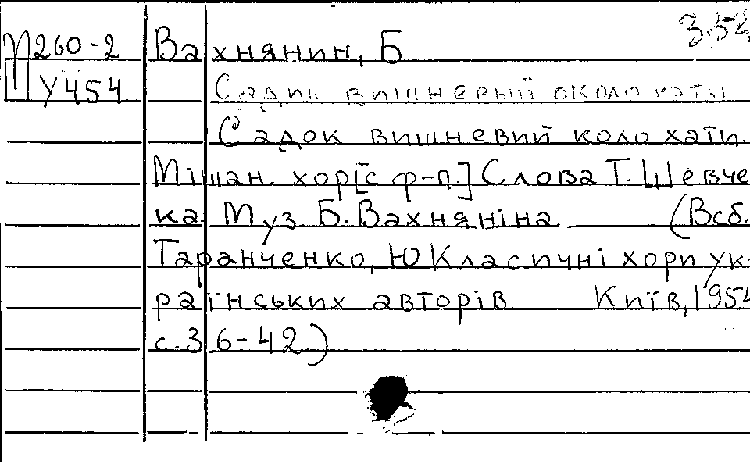 3.54
М260-2 Вахнянин, Б
У454 Садик вишневый около хаты
Садок вишневий коло хати.
Мішан. хор[с ф-п.] Слова Т. Шевче
ка. Муз. Б. Вахняніна (Всб.
Таранченко, Ю Класичні хори ук
раїнських авторів Київ, 1954
с. 36-42)